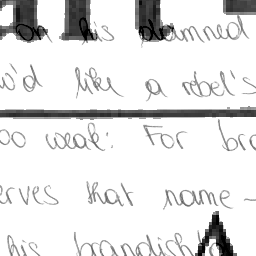 on his damned
w'd like a rebel's
too weak: For bra
erves that name–
his brandish'd